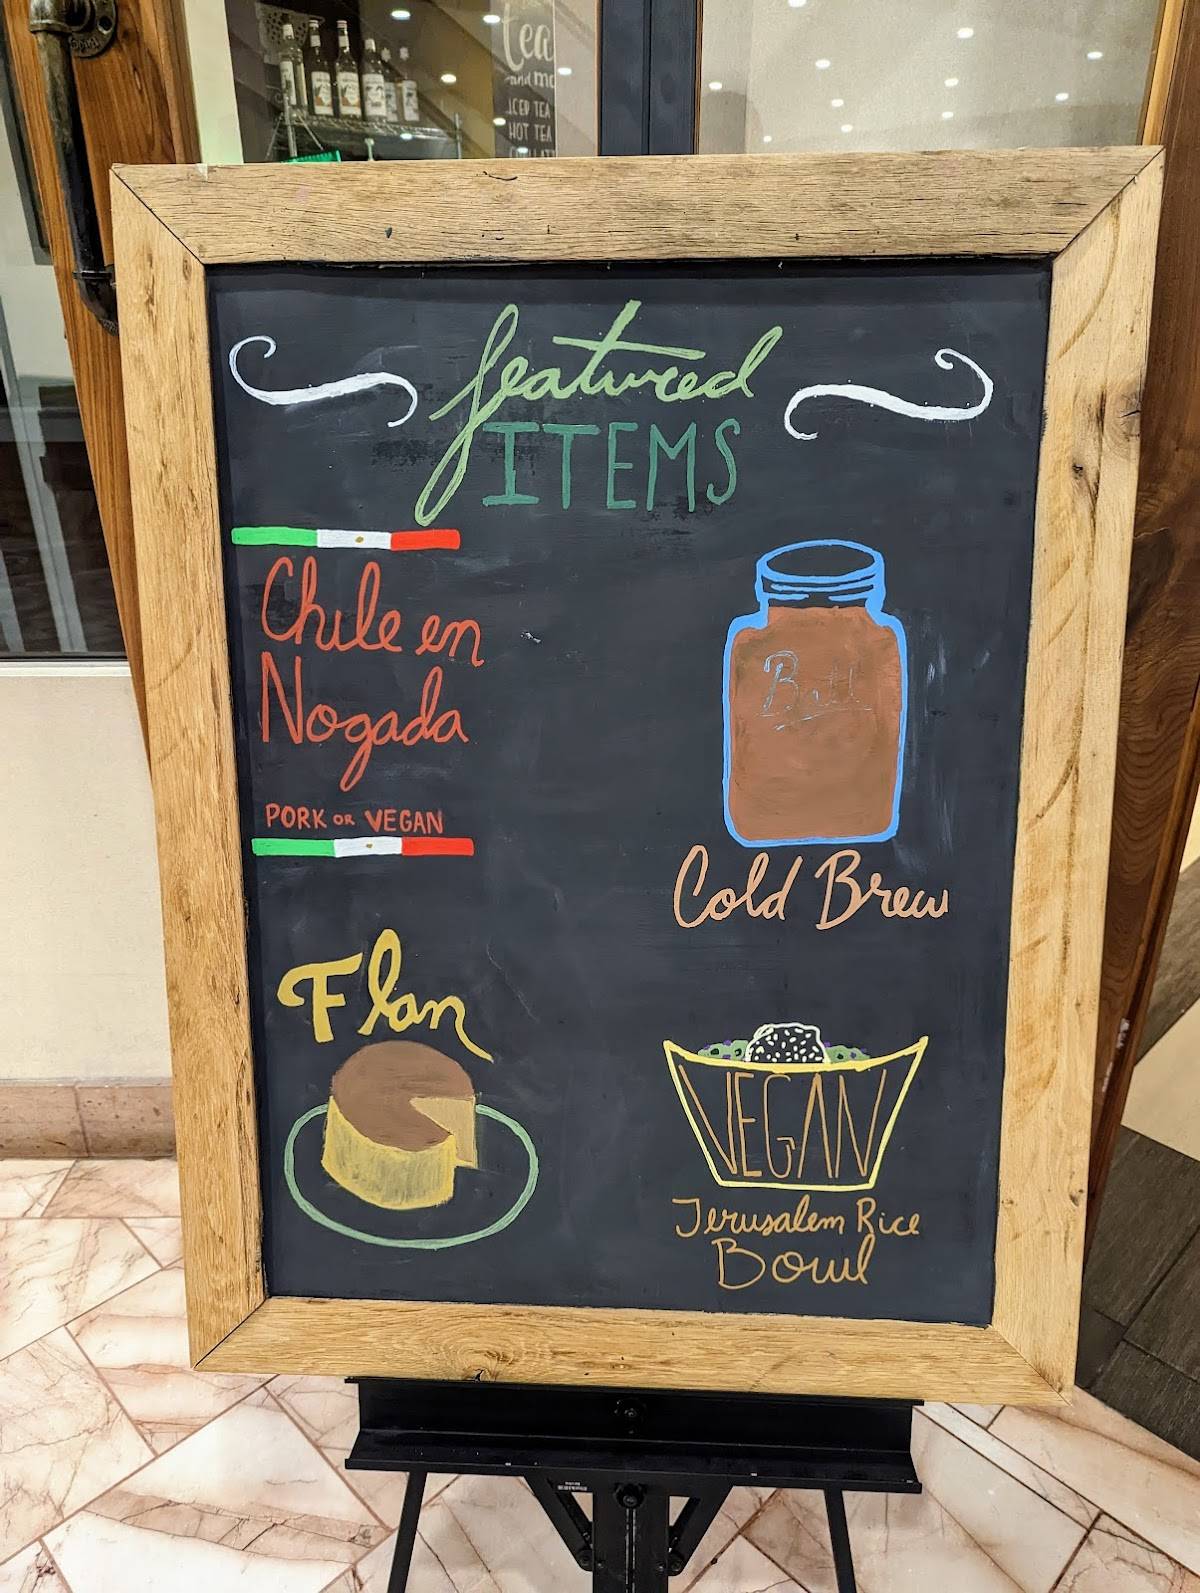 tea
and mo
ICED TEA
HOT TEA
featured
ITEMS
Chile en
Nogada
PORK OR VEGAN
Ball
Cold Brew
Flan
VEGAN
Jerusalem Rice
Bowl